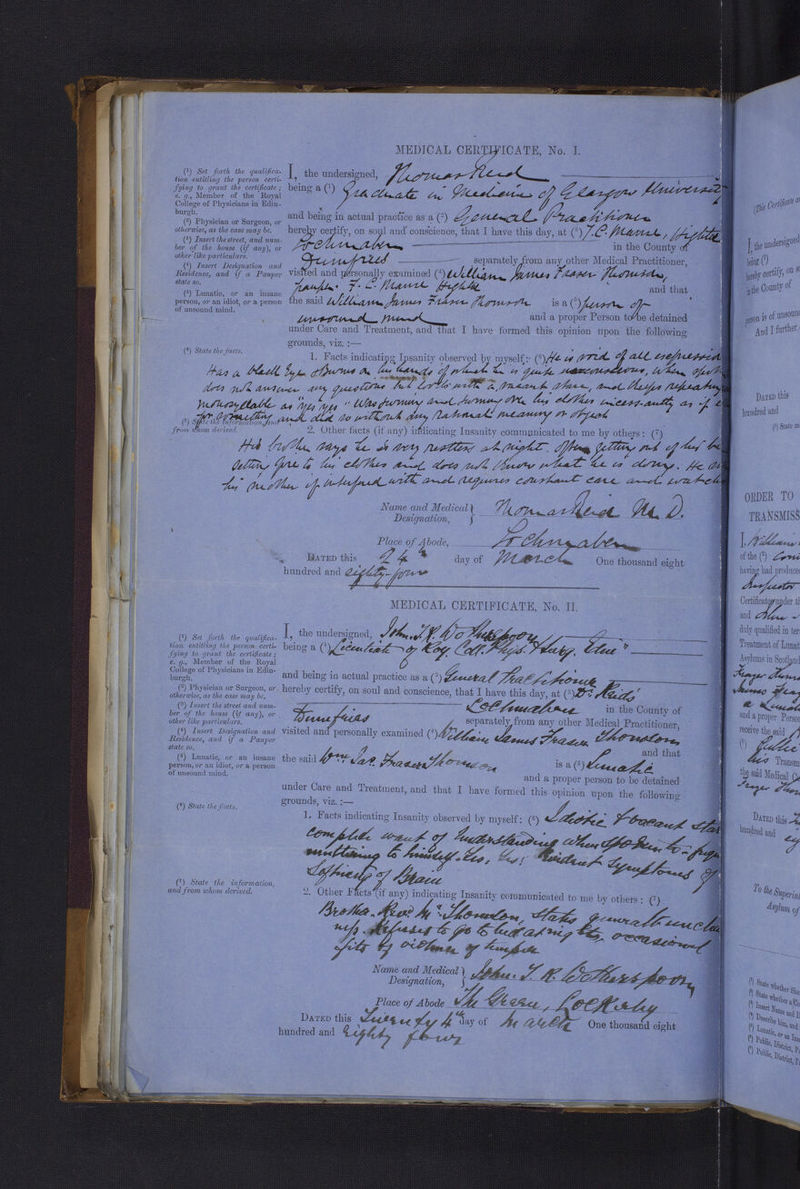 MEDICAL CERTIFICATE, No. I.
(1) Set forth the qualifica-
tion entitling the person certi-
fying to grant the certificate;
e. g., Member of the Royal
College of Physicians in Edin-
burgh.
(2) Physician or Surgeon, or
otherwise, as the case may be.
(3) Insert the street, and num-
ber of the house (if any), or
other like particulars.
(4) Insert Designation and
Residence, and if a Pauper
state so.
(5) Lunatic, or an insane
person, or an idiot, or a person
of unsound mind.
(6) State the facts.
(7) State the information, and
from whom derived.
I, the undersigned, Thomas Reid
being a (1) Graduate in Medicine of Glasgow University
and being in actual practice as a (2) General Practitioner
hereby certify, on soul and conscience, that I have this day, at (3) F. C. Manse, Hightae
Lochmaben in the County of
Dumfries separately from any other Medical Practitioner,
visited and personally examined (4) William James Fraser Thomson,
Pauper. F. C. Manse Hightae and that
the said William James Fraser Thomson is a (5) person of
unsound mind and a proper Person to be detained
under Care and Treatment, and that I have formed this opinion upon the following
grounds, viz.:—
1. Facts indicating Insanity observed by myself: (6) He is void of all expression
Has a black Eye & burns on his hands of which he is quite unconscious, when spoken
does not answer any questions but looks with a vacant stare, and keeps repeating
monosyllable as "yes yes" Was turning and turning over his clothes incessantly as if
for something and did so without any rational meaning or object
2. Other facts (if any) indicating Insanity communicated to me by others: (7)
His brother says he is very restless at night often getting out of his
setting fire to his clothes and does not know what he is doing. He
his mother if interfered with and requires constant care and
Name and Medical Designation, Thomas Reid M. D.
Place of Abode, Lochmaben
DATED this 24th day of March One thousand eight
hundred and eighty-four
MEDICAL CERTIFICATE, No. II.
(1) Set forth the qualifica-
tion entitling the person certi-
fying to grant the certificate;
e. g., Member of the Royal
College of Physicians in Edin-
burgh.
(2) Physician or Surgeon, or
otherwise, as the case may be.
(3) Insert the street and num-
ber of the house (if any), or
other like particulars.
(4) Insert Designation and
Residence, and if a Pauper
state so.
(5) Lunatic, or an insane
person, or an idiot, or a person
of unsound mind.
(6) State the facts.
(7) State the information,
and from whom derived.
I, the undersigned, John. J. R. Wotherspoon
being a (1) Licentiate of Roy. Coll. Phys. & Surg. Edin.
and being in actual practice as a (2) General Practitioner
hereby certify, on soul and conscience, that I have this day, at (3) Dr. Reids
Lochmaben in the County of
Dumfries separately from any other Medical Practitioner,
visited and personally examined (4) William James Fraser Thomson
and that
the said Wm. Jas. Fraser Thomson is a (5) Lunatic
and a proper person to be detained
under Care and Treatment, and that I have formed this opinion upon the following
grounds, viz.:—
1. Facts indicating Insanity observed by myself: (6) Idiotic & vacant
complete want of understanding when spoken to -
muttering to himself. Evident symptoms of
Softening of Brain
2. Other Facts (if any) indicating Insanity communicated to me by others: (7)
Brother. Revd. Mr. Thomson, States
Refuses to go to bed at night, occasional
fits of violence of temper
Name and Medical Designation, John. J. R. Wotherspoon,
Place of Abode The Green, Lockerby
DATED this Twenty 4th day of March One thousand eight
hundred and Eighty four
(This Certificate
I, the undersigned
being (1)
hereby certify, on
in the County of
person is of unsound
And I further
DATED this
hundred and
ORDER TO
TRANSMISS
I, William
of the (2)
having had produced
Certificates under
and
duly qualified in
Treatment of Lunat
Asylums in Scotland
and a proper Person
receive the said
the said Medical
DATED this
hundred and
To the Superin
Asylum of